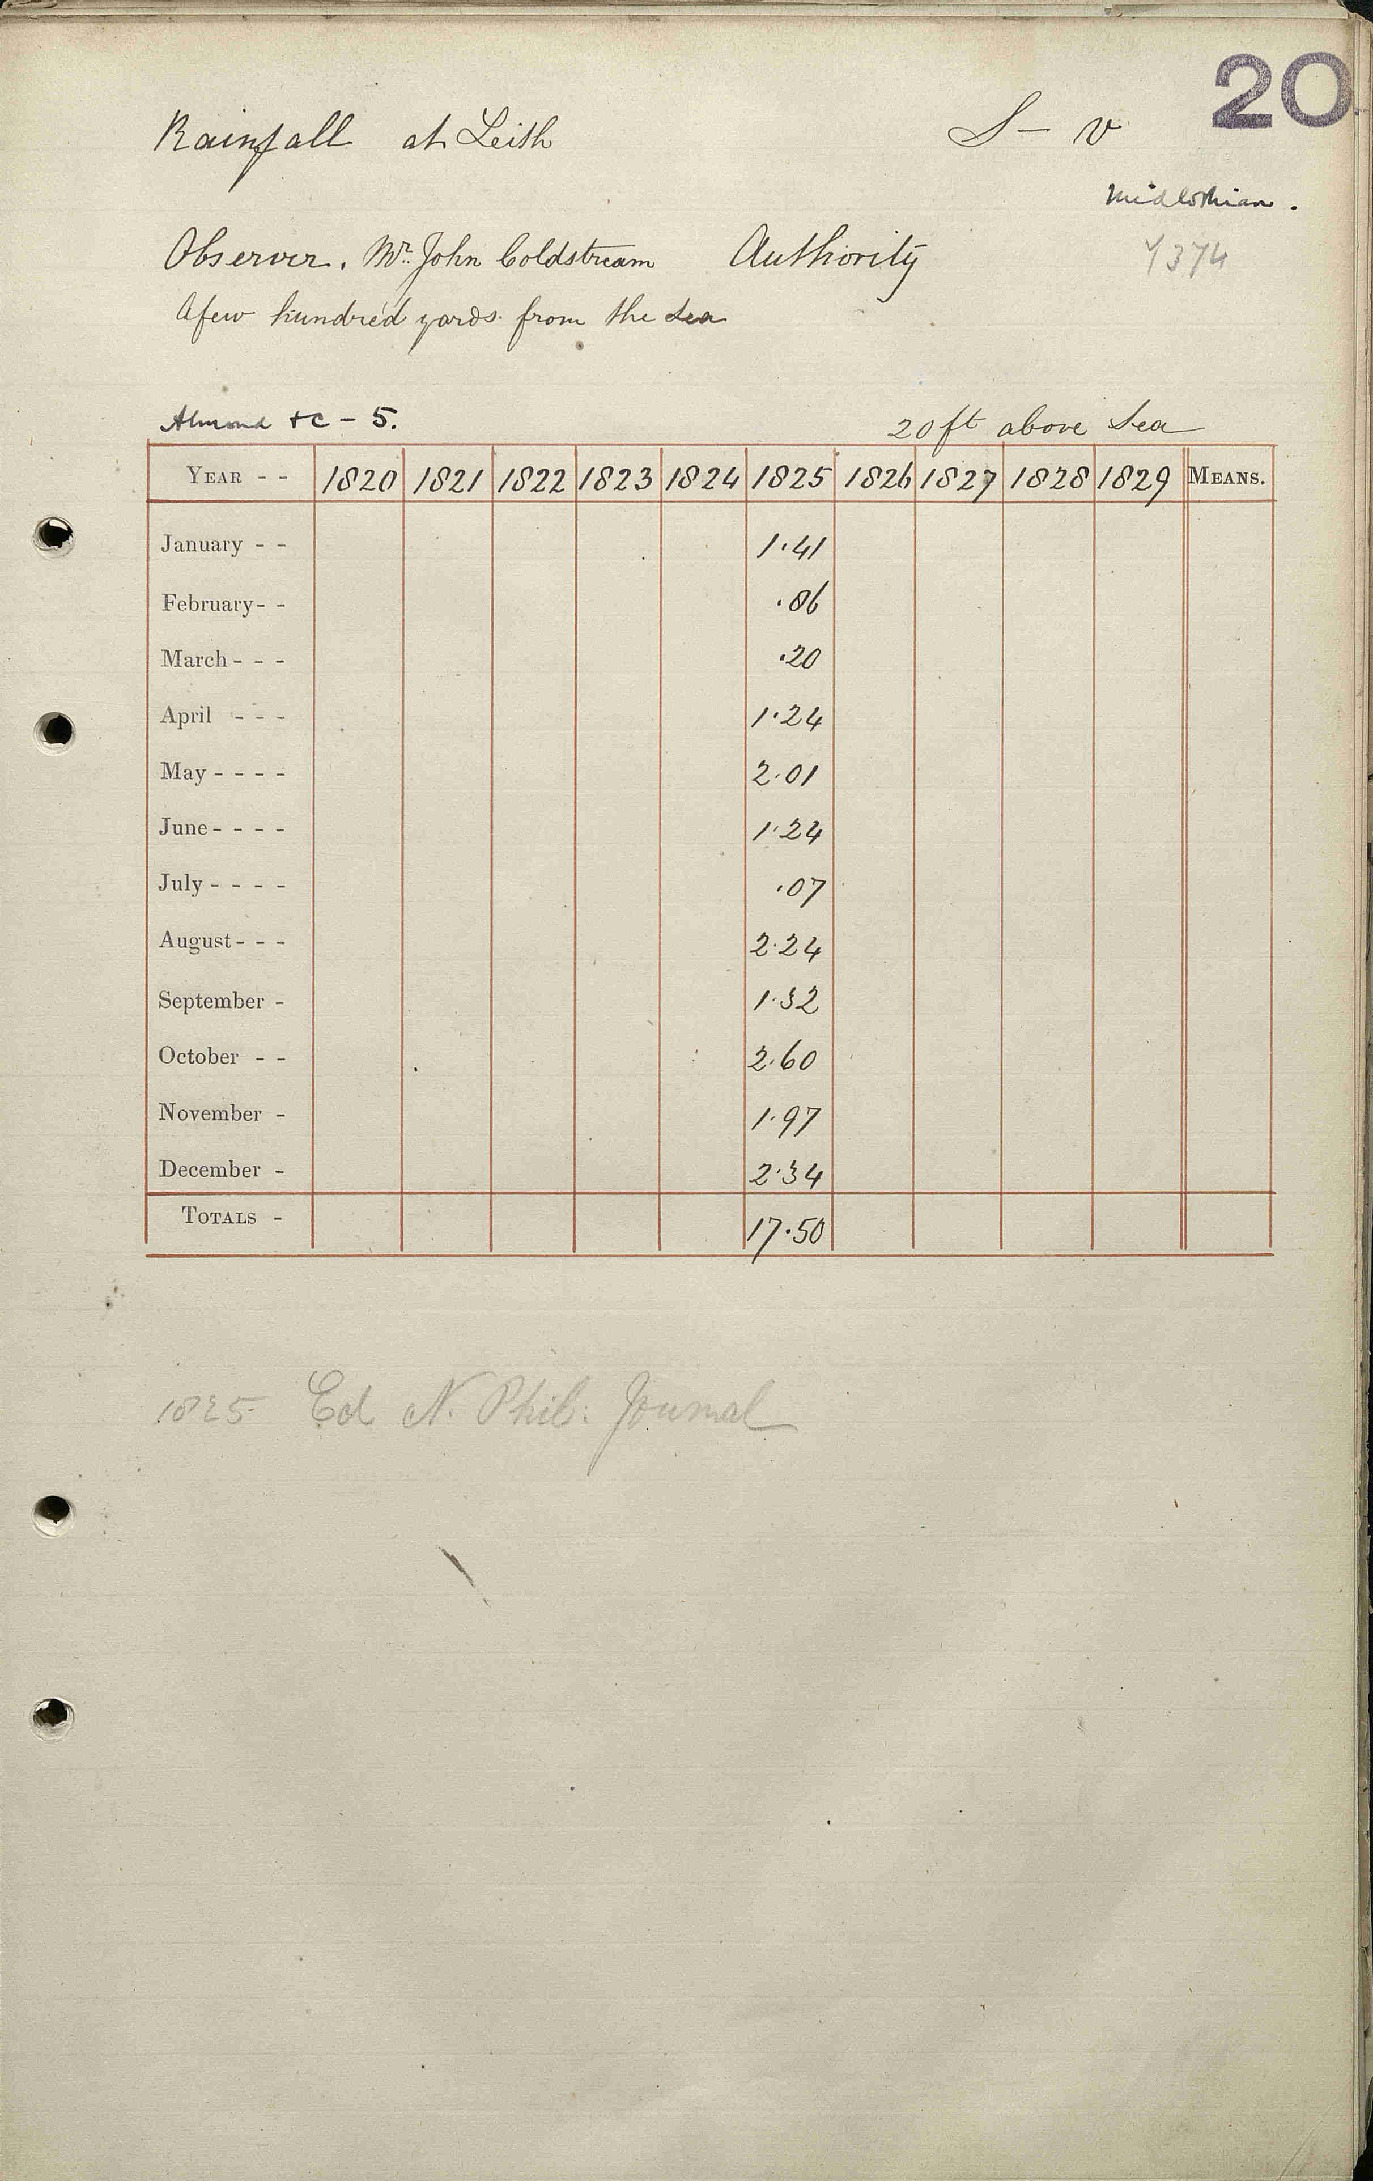 20
Rainfall at Leith S – V
Midlothian.
Observer. Mr. John Coldstream Authority
A few hundred yards from the Sea
Almond & C – 5. 20 ft above Sea
YEAR - - 1820 1821 1822 1823 1824 1825 1826 1827 1828 1829 MEANS.
January - - 1.41
February - - .86
March - - - .20
April - - - 1.24
May - - - - 2.01
June - - - - 1.24
July - - - - .07
August - - - 2.24
September - 1.32
October - - 2.60
November - 1.97
December - 2.34
TOTALS - 17.50
1825 Ed N. Phil: Journal